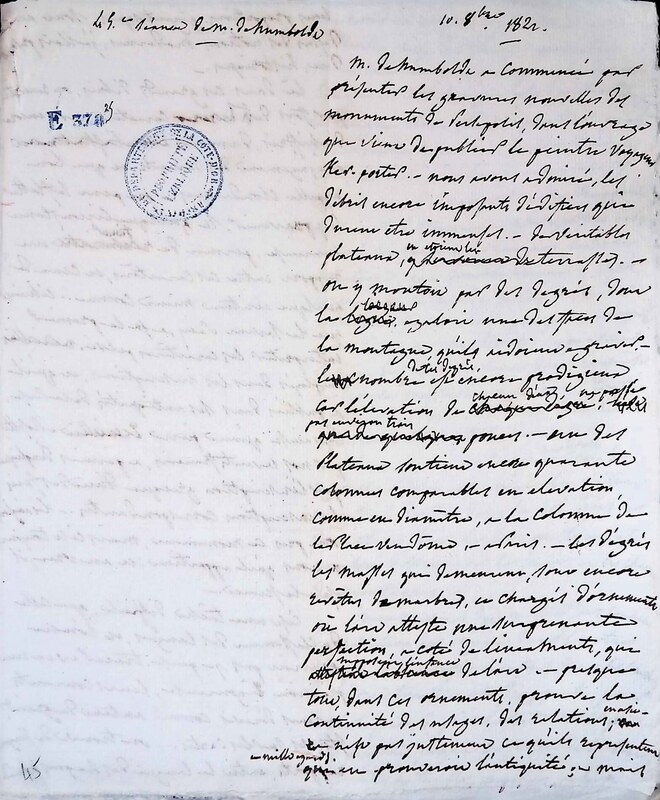 Le 5.e séance de m. de humboldt
10. 8bre 1821.
E 378 35
ARCHIVES DÉPARTEMENTALES DE LA CÔTE-D'OR
m. de humboldt a commencé par
présenter les gravures nouvelles des
monuments de Persépolis, dans l'ouvrage
que vient de publier le peintre voyageur
Ker porter. - nous avons admiré, les
débris encore imposants d'édifices qui
durent être immenses. - de véritables
plateaux, en terrasses. -
on y montoit par des degrés, dont
la largeur égaloit une des faces de
la montagne, qu'ils
le nombre de ces degrés, est encore prodigieux
car l'élévation de chacun d'eux, ne passe
pas pouces. - un des
Plateaux soutient encore quarante
colonnes comparables en élévation,
comme en diamètre, a la Colonne de
la Place Vendôme, a Paris. - les dégrés
les masses qui demeurent, sont encore
revêtus de marbres, et chargés d'ornements
où l'art atteste une surprenante
perfection, a coté de linéaments, qui
l'enfance de l'art. - presque
tout, dans ces ornements, prouve la
Continuité des usages, des relations;
n'est pas justement ce qu'ils représentent
qui en prouveroit l'antiquité; - mais
45